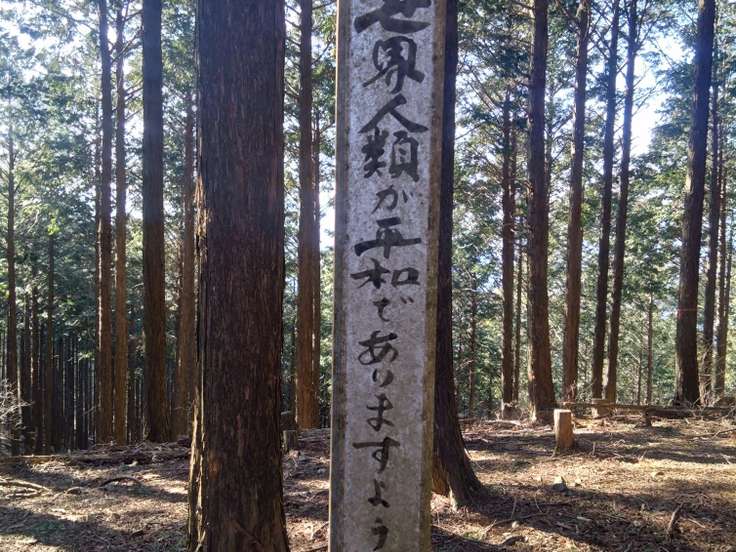 世界人類が平和でありますよう